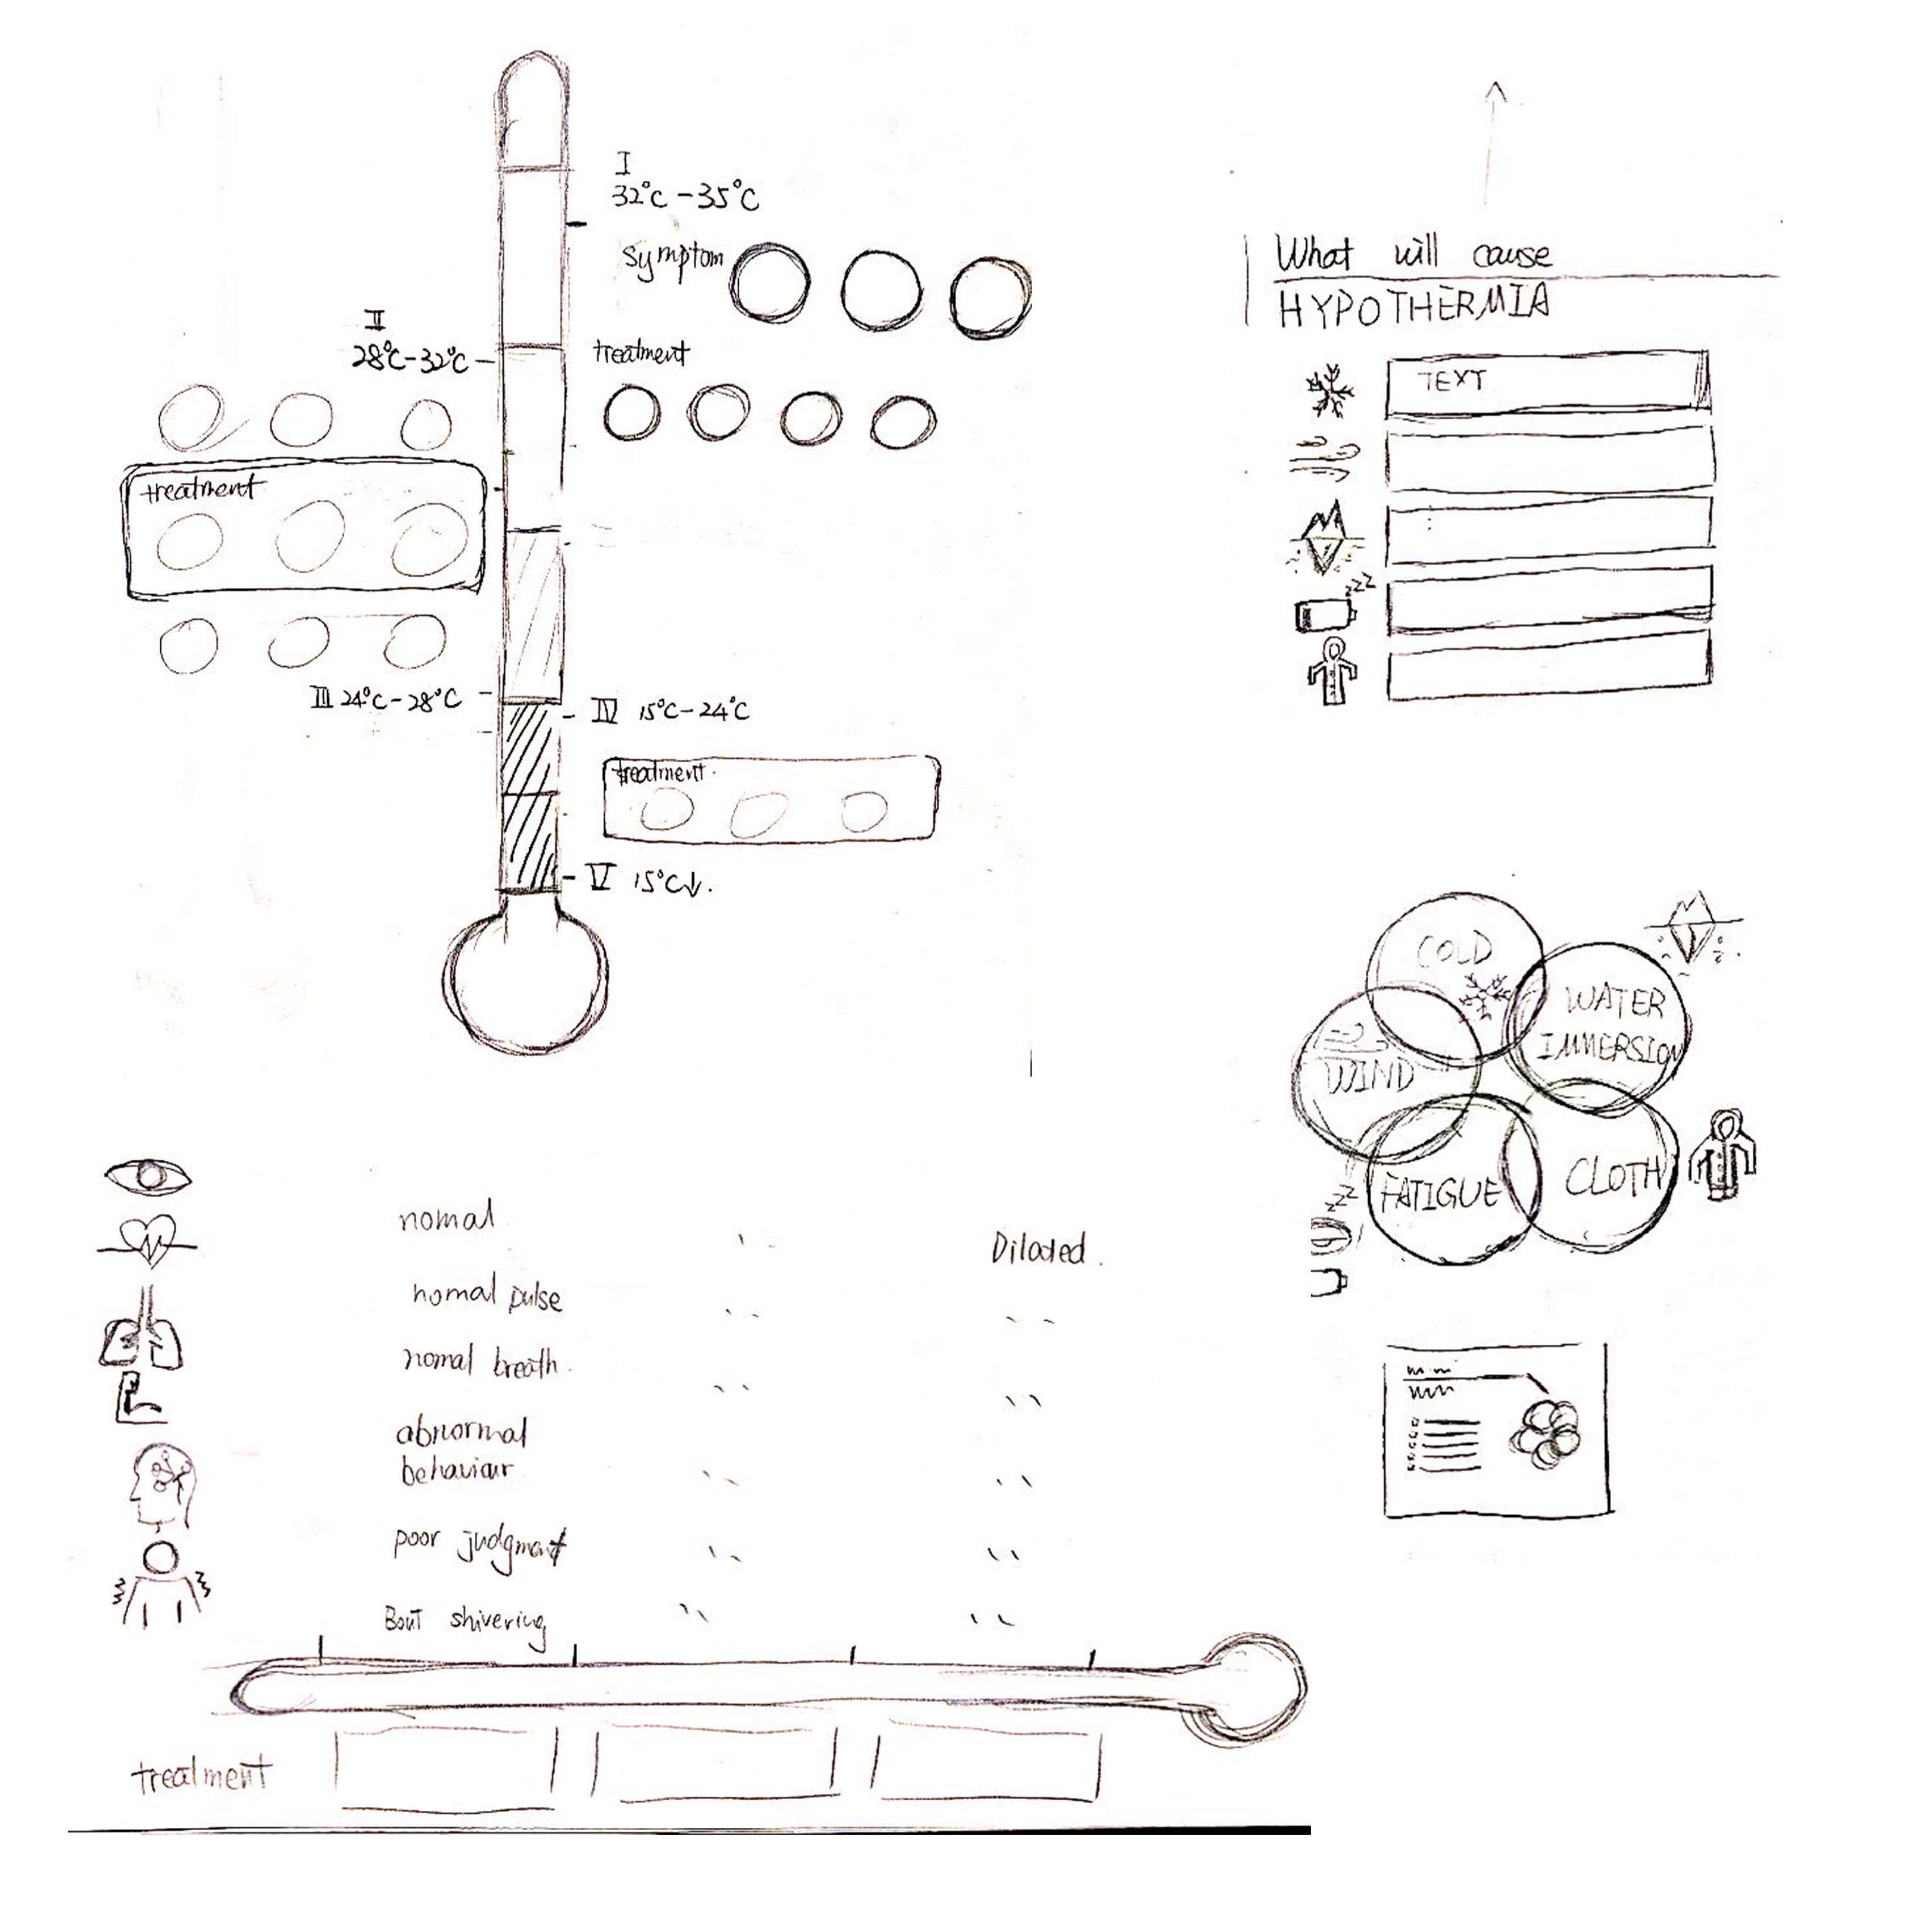 I
32°C - 35°C
symptom
II
28°C - 32°C
treatment
treatment
III 24°C - 28°C
IV 15°C - 24°C
treatment.
V 15°C↓.
What will cause
HYPOTHERMIA
TEXT
zzZ
COLD
WATER
IMMERSION
WIND
FATIGUE
CLOTH
zzZ
nomal
Dilated.
nomal pulse
nomal breath.
abnormal
behaviour
poor judgment
Bout shivering
treatment